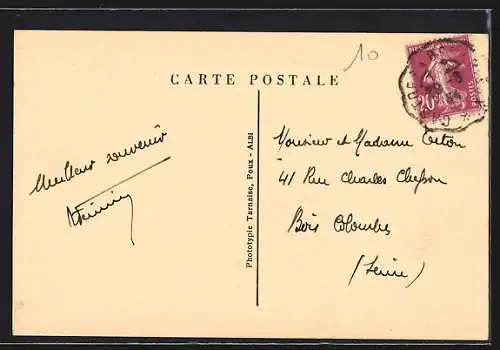 10
CARTE POSTALE
20c
POSTES
Meilleur souvenir
Phototypie Tarnaise, Poux - ALBI
Monsieur et Madame
41 Rue Charles
Bois Colombes
(Seine)